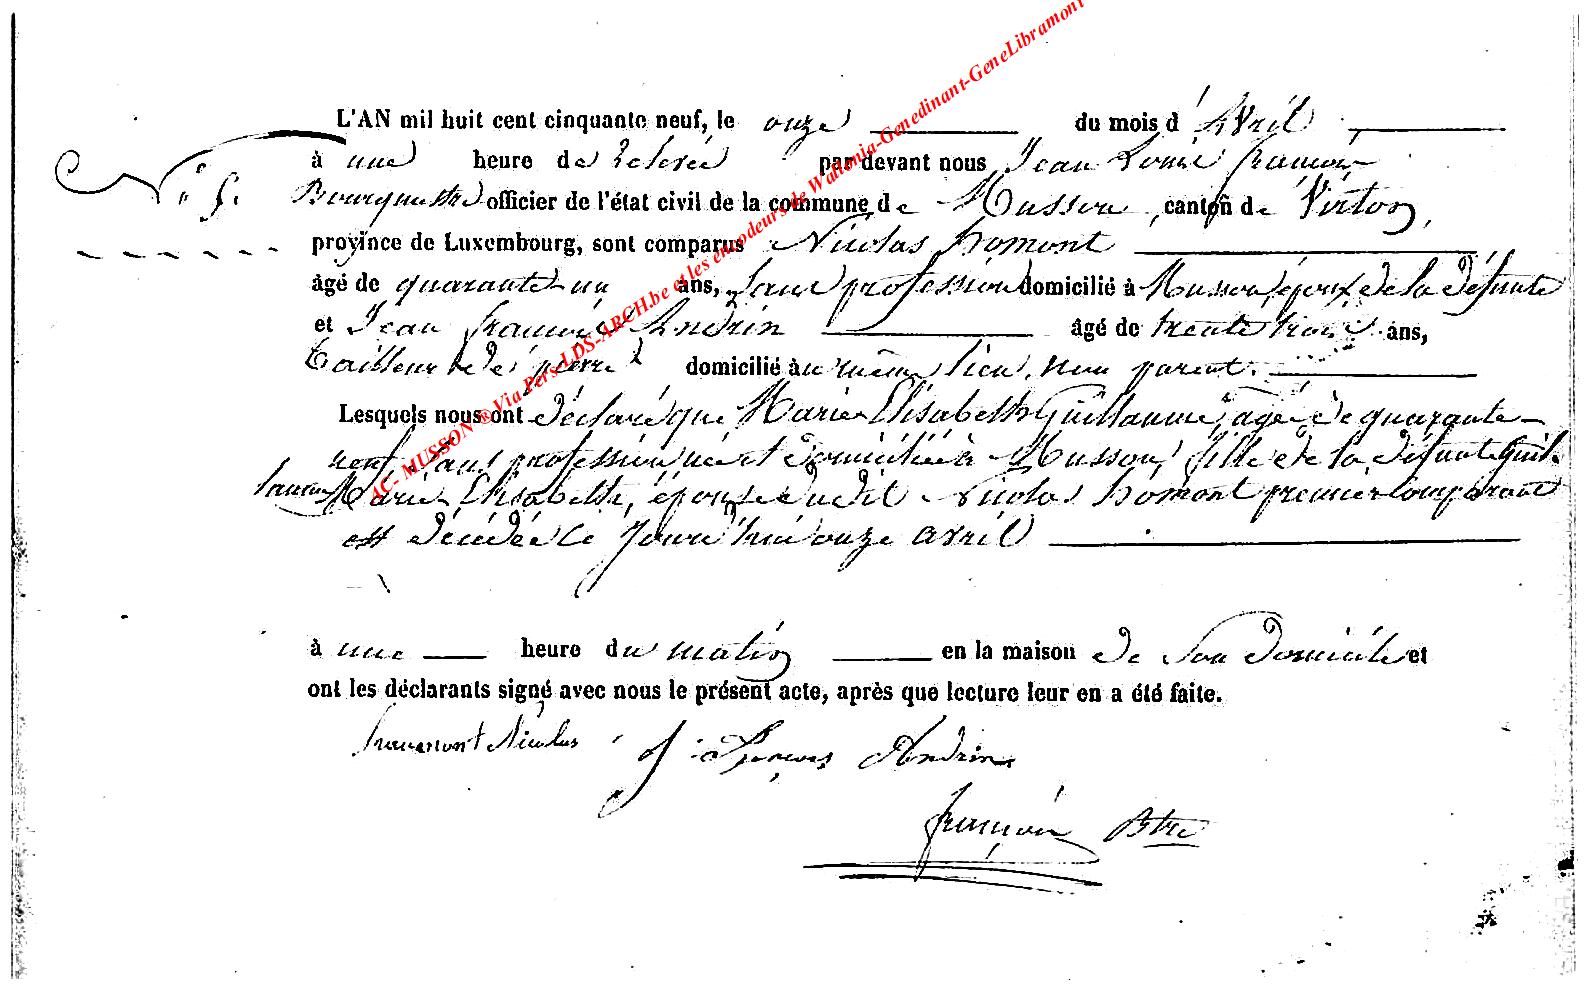 AC- MUSSON ® Via Pers-LDS-ARCH.be et les encodeurs de Wallonia-Genedinant-GeneLibramont
L'AN mil huit cent cinquante neuf, le onze du mois d'Avril
à une heure de relevée par devant nous Jean Louis François
N° 5. Bourgmestre officier de l'état civil de la commune de Musson canton de Virton,
province de Luxembourg, sont comparus Nicolas Fromont
âgé de quarante un ans, sans profession domicilié à Musson, époux de la défunte
et Jean François Andrin âgé de trente trois ans,
Tailleur de pierre domicilié au même lieu, non parent.
Lesquels nous ont déclaré que Marie Elisabeth Guillaume, agée de quarante
neuf, sans profession née et domiciliée à Musson, fille de la défunte Guil-
laume Marie Elisabeth, épouse dudit Nicolas Fromont premier comparant
est décédée ce jourd'hui onze avril
à une heure du matin en la maison de son domicile et
ont les déclarants signé avec nous le présent acte, après que lecture leur en a été faite.
Nicolas Andrin
François Btre